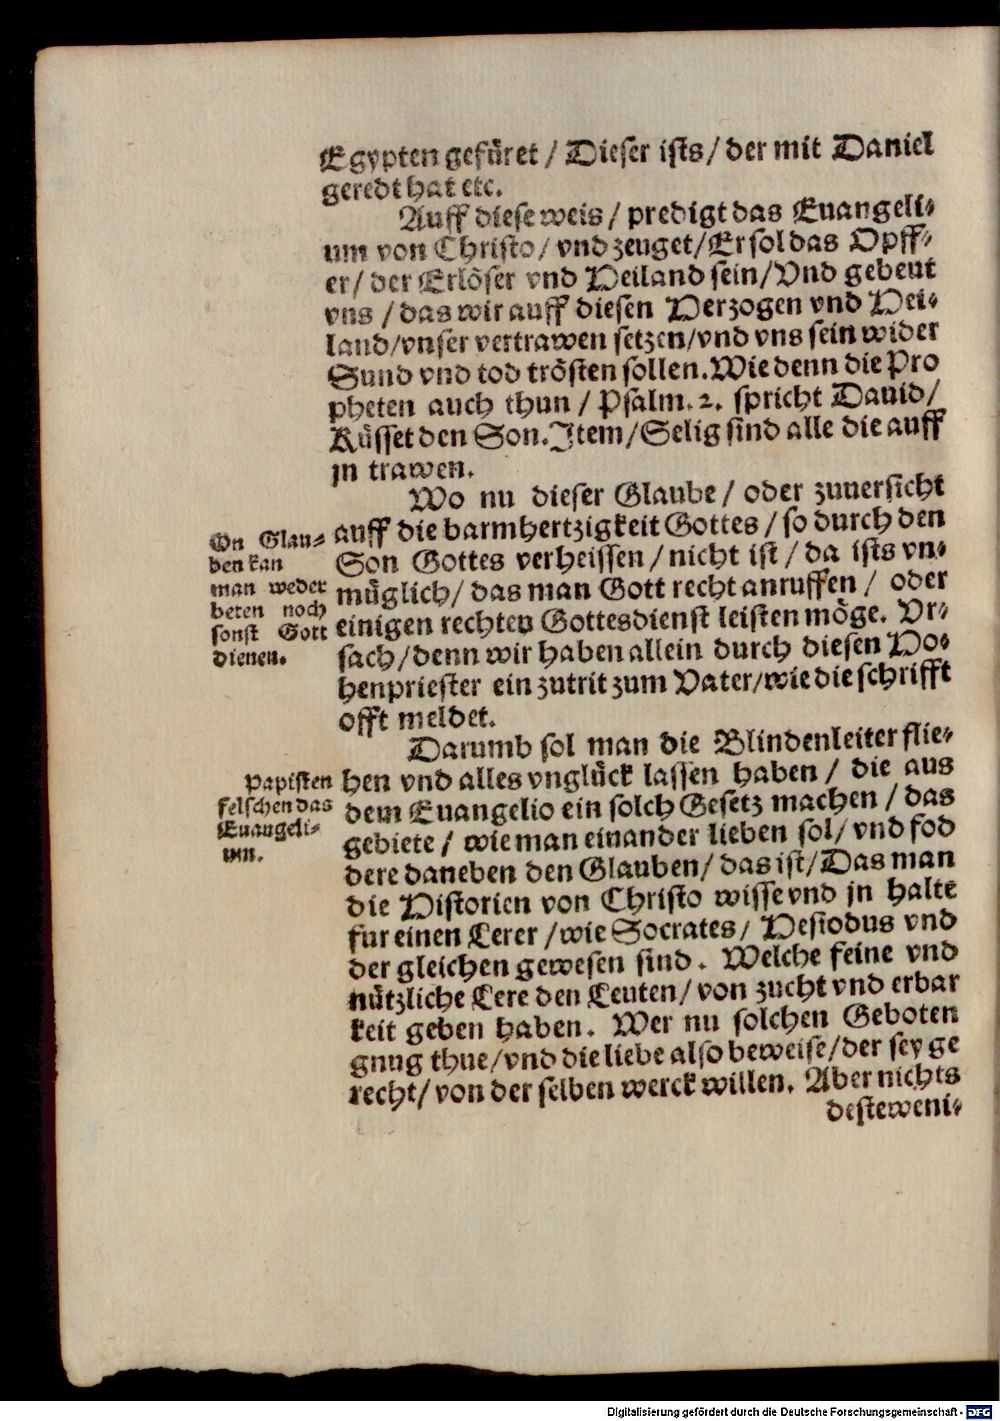 Egypten gefüret / Dieser ists / der mit Daniel
geredt hat etc.
Auff diese weis / predigt das Euangeli⸗
um von Christo / vnd zeuget / Er sol das Opff⸗
er / der Erlöser vnd Heiland sein / Vnd gebeut
vns / das wir auff diesen Herzogen vnd Hei⸗
land / vnser vertrawen setzen / vnd vns sein wider
Sund vnd tod trösten sollen. Wie denn die Pro
pheten auch thun / Psalm. 2. spricht Dauid /
Küsset den Son. Item / Selig sind alle die auff
jn trawen.
Wo nu dieser Glaube / oder zuuersicht
auff die barmhertzigkeit Gottes / so durch den
Son Gottes verheissen / nicht ist / da ists vn⸗
müglich / das man Gott recht anruffen / oder
einigen rechten Gottesdienst leisten möge. Vr⸗
sach / denn wir haben allein durch diesen Ho⸗
henpriester ein zutrit zum Vater / wie die schrifft
offt meldet.
On Glau⸗
ben kan
man weder
beten noch
sonst Gott
dienen.
Darumb sol man die Blindenleiter flie⸗
hen vnd alles vnglück lassen haben / die aus
dem Euangelio ein solch Gesetz machen / das
gebiete / wie man einander lieben sol / vnd fod
dere daneben den Glauben / das ist / Das man
die Historien von Christo wisse vnd jn halte
fur einen Lerer / wie Socrates / Hesiodus vnd
der gleichen gewesen sind. Welche feine vnd
nützliche Lere den Leuten / von zucht vnd erbar
keit geben haben. Wer nu solchen Geboten
gnug thue / vnd die liebe also beweise / der sey ge
recht / von der selben werck willen. Aber nichts
desteweni⸗
Papisten
felschen das
Euangeli⸗
um.
Digitalisierung gefördert durch die Deutsche Forschungsgemeinschaft - DFG